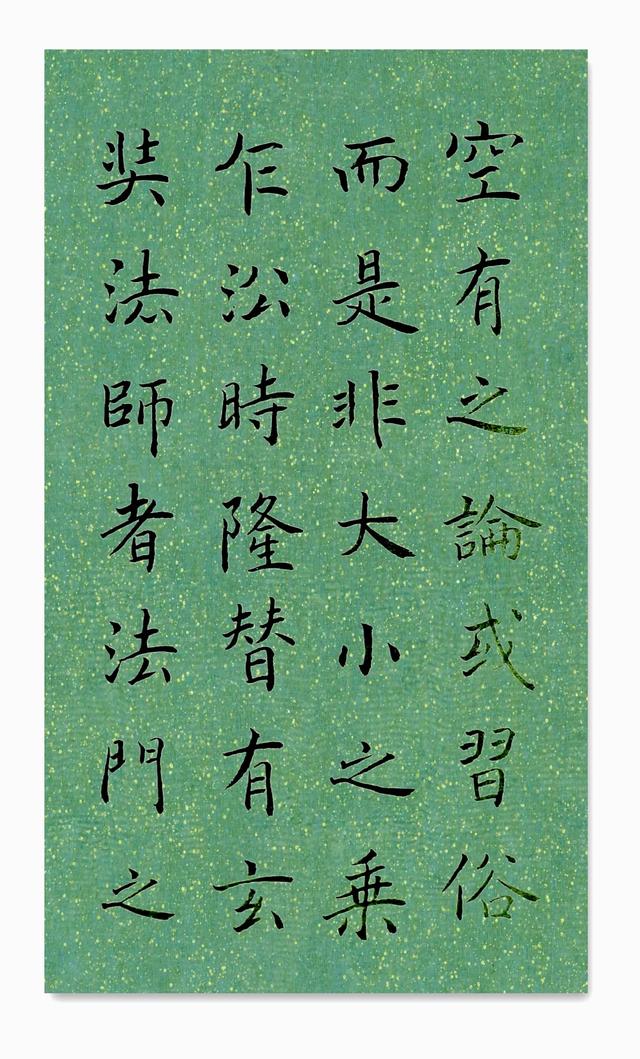 空有之論或習俗
而是非大小之乗
乍㳂時隆替有玄
奘法師者法門之